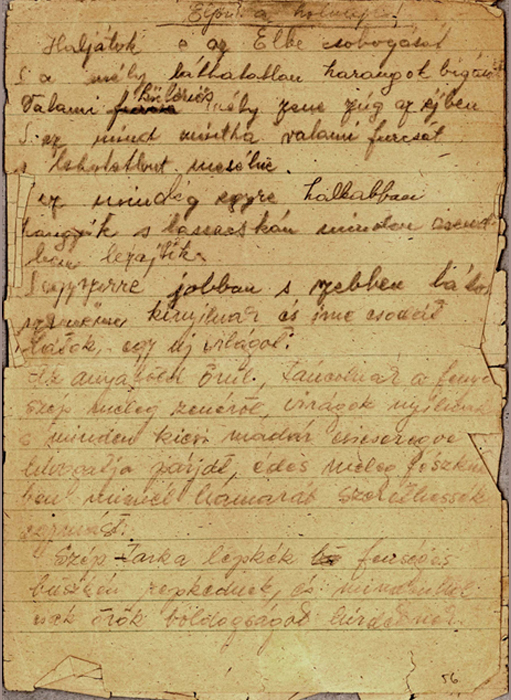 Eljön a holnap is!
Halljátok e az Elbe csobogását
S a mély láthatatlan harangok búgását
Valami furcsa különös mély zene zúg az éjben
S ez mind mintha valami furcsát
s lehetetlent mesélne.
S ez mindég egyre halkabban
hangzik s lassacskán minden csend-
ben lezajlik.
S egyszerre jobban s szebben
kinyílnak és ime csodát
látok, egy új világot.
Az anyaföld örül, táncolnak a
szép meleg zenéről, virágok nyílnak
s minden kicsi madár csicseregve
hívogatja párját, édes meleg fészkük-
ben minnél hamaráb szerethessék
egymást.
Szép tarka lepkék fenséges
büszkén repkednek, és mindenhol
csak örök boldogságot hirdetnek.
56